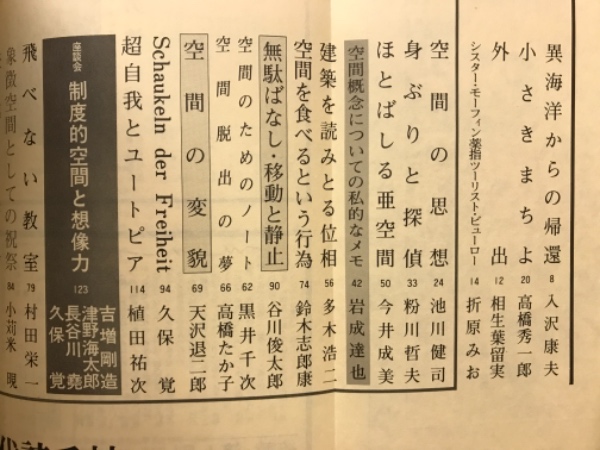 異海洋からの帰還 8 入沢康夫
小さきまちよ 20 高橋秀一郎
外出 12 相生葉留実
シスター・モーフィン薬指ツーリスト・ビューロー 14 折原みお
空間の思想 24 池川健司
身ぶりと探偵 33 粉川哲夫
ほとばしる亜空間 50 今井成美
空間概念についての私的なメモ 42 岩成達也
建築を読みとる位相 56 多木浩二
空間を食べるという行為 74 鈴木志郎康
無駄ばなし・移動と静止 90 谷川俊太郎
空間のためのノート 62 黒井千次
空間脱出の夢 66 高橋たか子
空間の変貌 69 天沢退二郎
Schaukeln der Freiheit 94 久保覚
超自我とユートピア 114 植田祐次
座談会 制度的空間と想像力 123 吉増剛造
津野海太郎
長谷川堯
久保覚
飛べない教室 79 村田栄一
象徴空間としての祝祭 84 小苅米晛